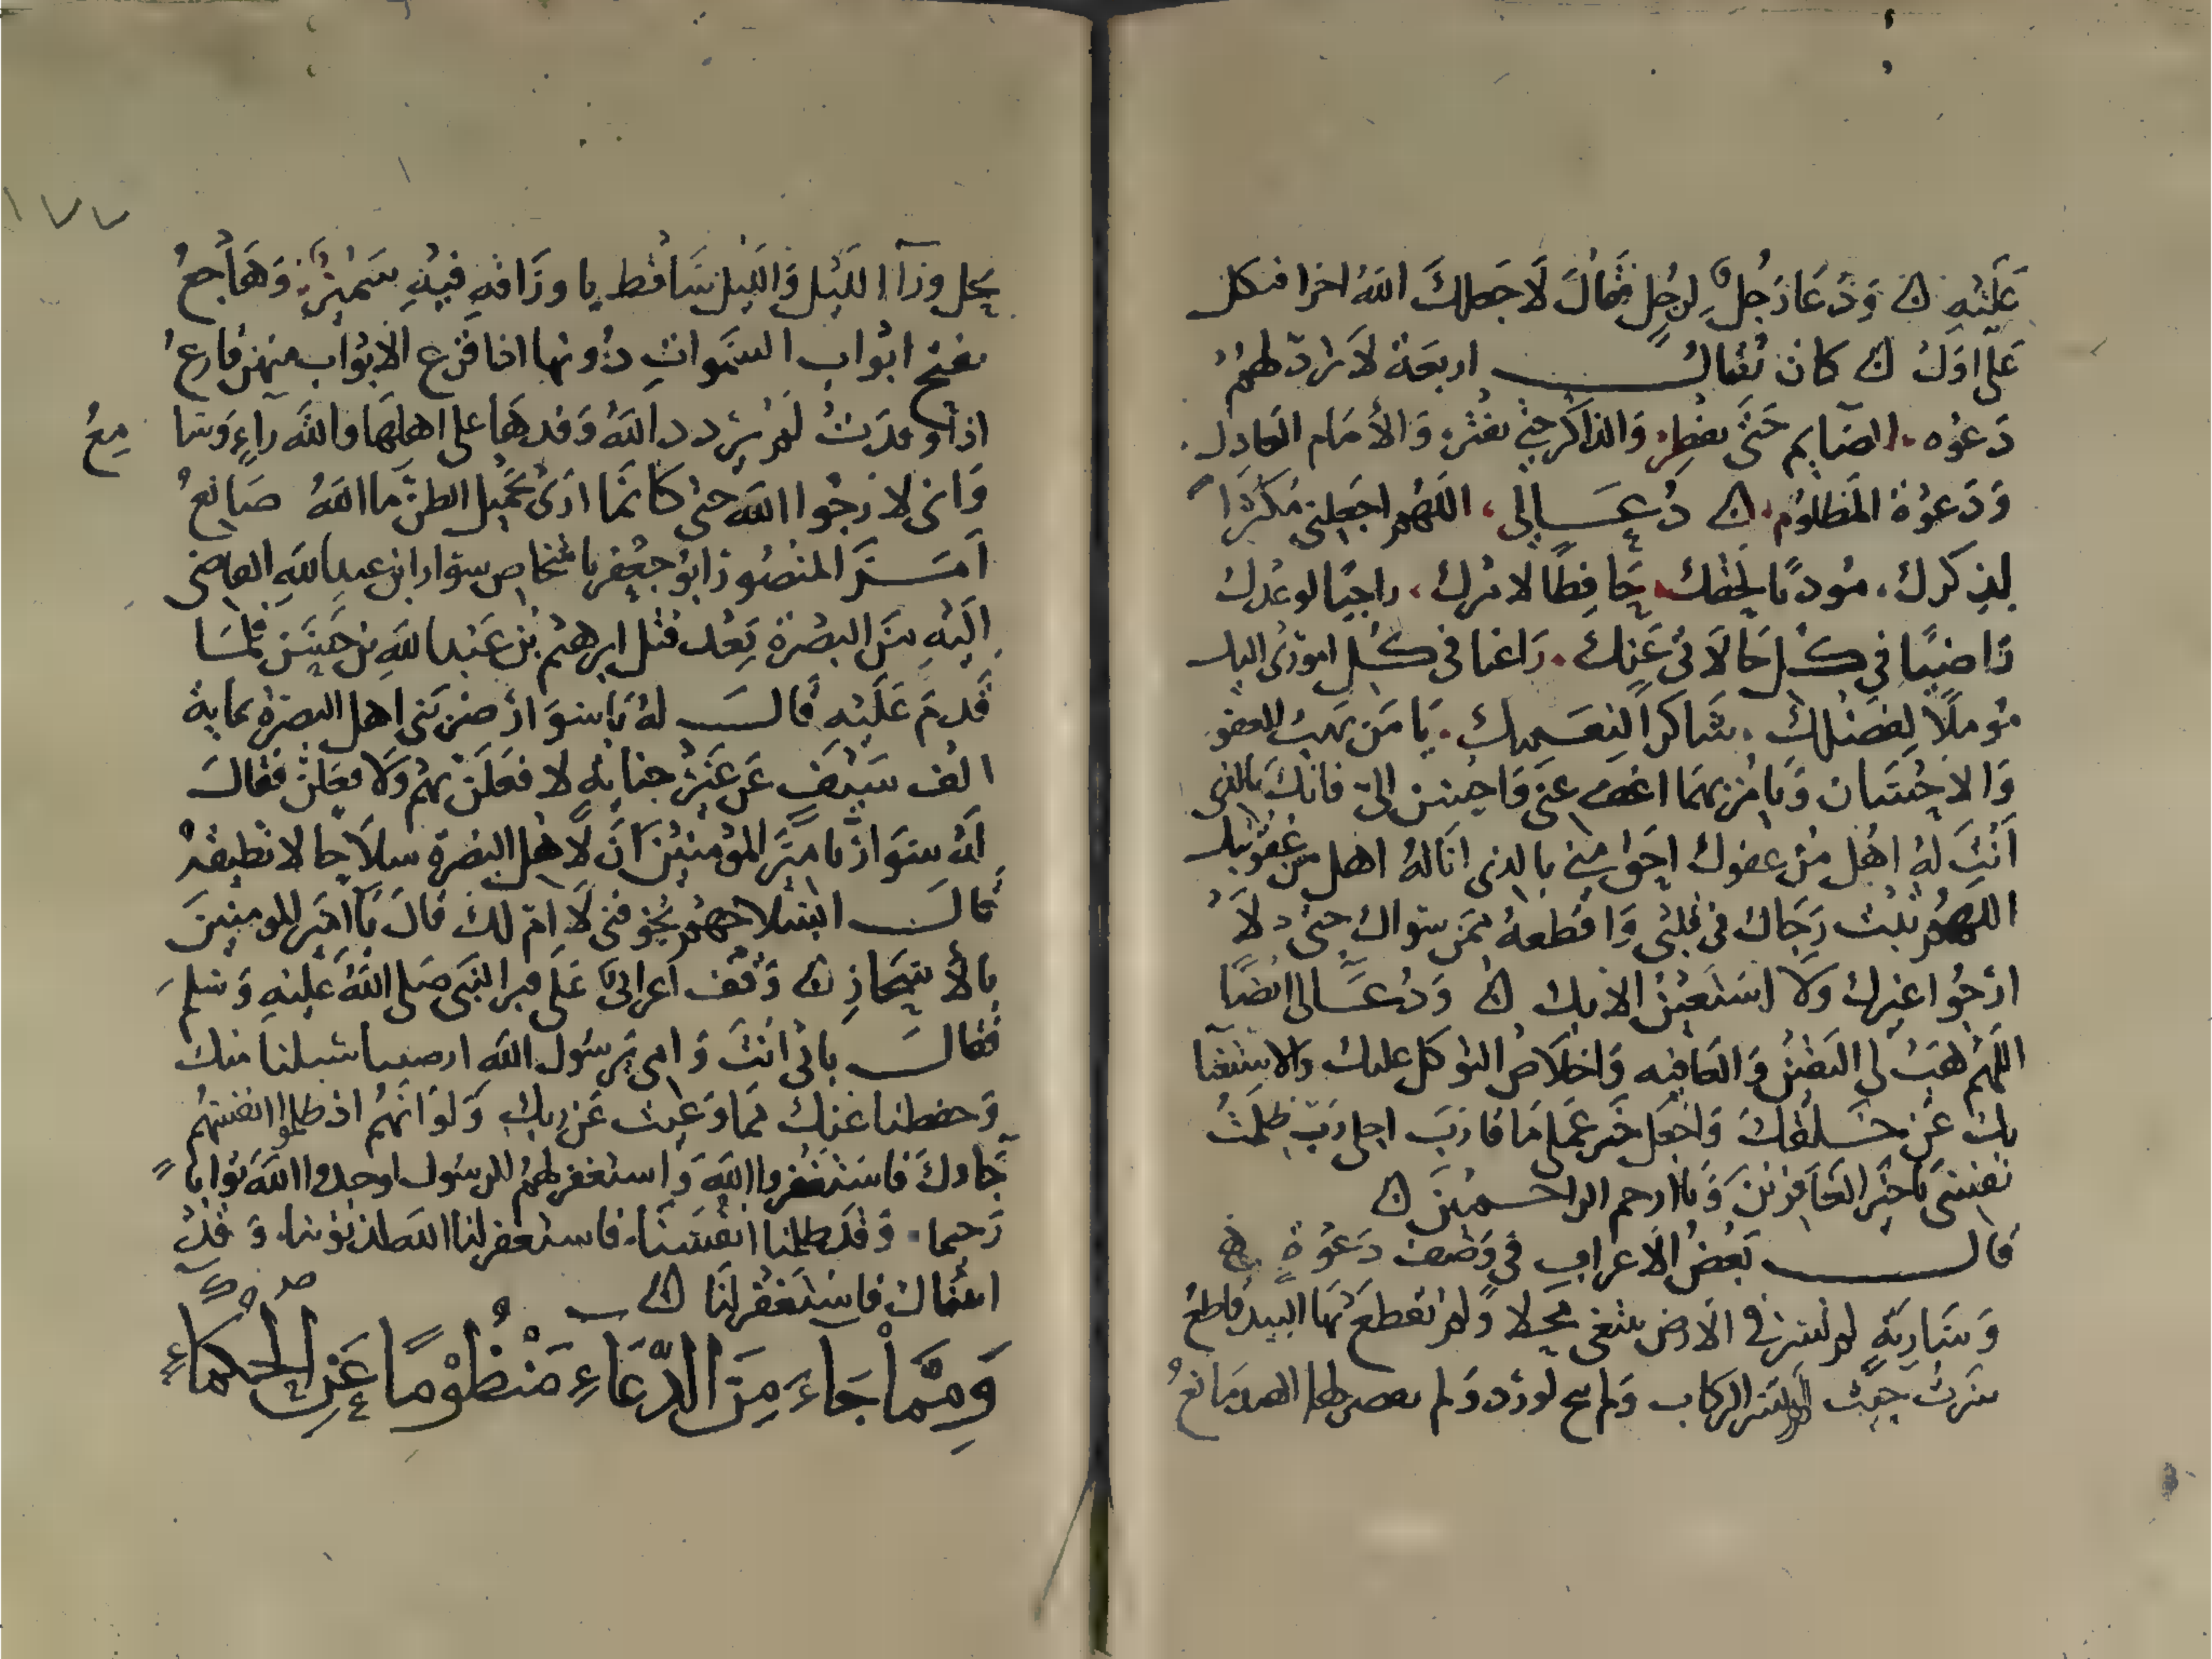 عَلَيْهِ ۞ وَدَعَا رَجُلٌ لرَجُلٍ فقَالَ لَا جعلكَ اللهُ اخرا فتكل
عَلَى اوَلَ ۞ كان يُقال اربعَة لَا تردّ لهمُ
دَعوُه . الصَّايم حَتى يفطِر. وَالذاكر حتى يفتر. وَالأمَام العَادل.
وَدَعوَة المَظلوُم . ۞ دُعَا لى، اللهُم اجعلني مُكثراً
لِذِكرك. مُودياً لحقك. حَافِظًا لامرك، راجيًا لوعدك
رَاضيًا في كل حَالاتى عَنِك. رَاغبا فى كُل امُورى اليك
مُوملاً لِفضَلك . شَاكراً لنِعَمِك. يَا مَن يحب العفو
وَالاحْسَان وَيامُر بهمَا اعفُ عنى وَاحسِن الىّ فانكَ بالذى
اَنتَ لهُ اهْل من عفوك احَق منى بالذى انَا لهُ اهل من عقوبتك
اللهُم ثبت رَجَاك فى قلبى وَاقطعهُ ممَن سوَاك حتى لَا
ارْجُوا غيرك وَلا استَعين الا بك ۞ وَدُعَا لى ايضًا
اللَهُم هَبْ لى اليَقينُ وَالعَافيه وَاخلاصُ التوكل عليك والاستغنا
بك عَن خَلقك وَاجعَل خَير عَملى مَا قارَب اجلى رَبّ ظلمَتُ
نفسى يَا خَير الغَافرينَ وَيا ارحم الراحمينَ ۞
قال بَعضُ الاعراب فى وَصف دَعوَةٍ
وَسَاريَةٍ لم تَسر فى الارض تبتغى محَلا وَلم تقطع بَها البيد قاطعُ
سَرَتْ حيث لم تسر الركاب وَلم تنخ لورد وَلم يقصر لها القيد مَانعُ
١٧٧
يحل ورَآء الليْل وَالليل سَاقط باورَاقهِ فيهِ سَميرٌ وَهَاجعُ
تفتح ابْواب السَّموات دُونها اذا قرع الابْوَاب منهن قارعُ
اذا وفدَتْ لم يَردد اللهُ وَفدهَا على اهلهَا والله رآءٍ وَسا
مِعُ
وَانى لارجُوا الله حتى كانمَا ارَى بجَميل الظن ما اللهُ صَانعُ
اَمَرَ المنصُور ابُو جعفر باشخاص سوار ابن عبد اللهِ القاضى
اليْهِ منَ البصْرَة بَعد قتل ابرهيم بن عَبد اللهِ بن حَسَن فلمَا
قَدمَ عَلَيْهِ قَال لهُ يَا سوَار نَصرَ بنى اهل البصرَة بمَايةِ
الف سَيْفٍ عَن غيْر جنَايةٍ لافعَلَن بهمُ وَلافعَلن فقالَ
لهُ سوَار يا اميَر المؤمِنيْنَ انَّ لاهْل البصْرَة سلاَحا لا تطيقهُ
قَالَ ابسلاحهمُ تخوفنى لَا امّ لك قالَ يَا اميَر المومنينَ
بالأسحَارِ ۞ وَقف اعرابىٌ عَلَى قبر النبَى صَلى اللهُ عَليْهِ وَسلم
فقال بابى اَنتَ وَامى يَرسُول الله
وَحفظنا عَنك مما وَعيت عَن ربك وَلَوْ انهَمُ اذ ظلموُا انفسَهُم
جَاوك فاستَغفروا اللهَ وَاستغفر لهمُ الرسُول لوجدوا اللهَ تواباً
رَحيما. وَقد ظلمنا انفسَنَا. فاستغفر لنا الله لذنوبنا. وَقدْ
اتينَاك فاستَغفر لنَا ۞
وَمِمَّا جَاءَ مِنَ الدّعَاءِ مَنْظُوْمًا عَنِ الحُكَمَاءِ